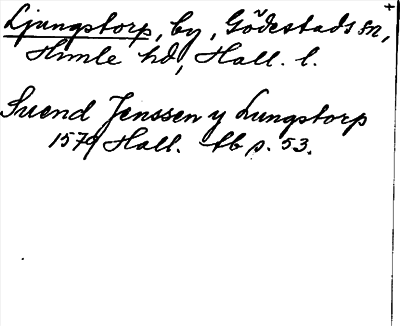 Ljungstorp, by, Gödestads sn,
Himle hd, Hall. l.
Suend Jenssen y Lungstorp
1579 Hall. tb p. 53.